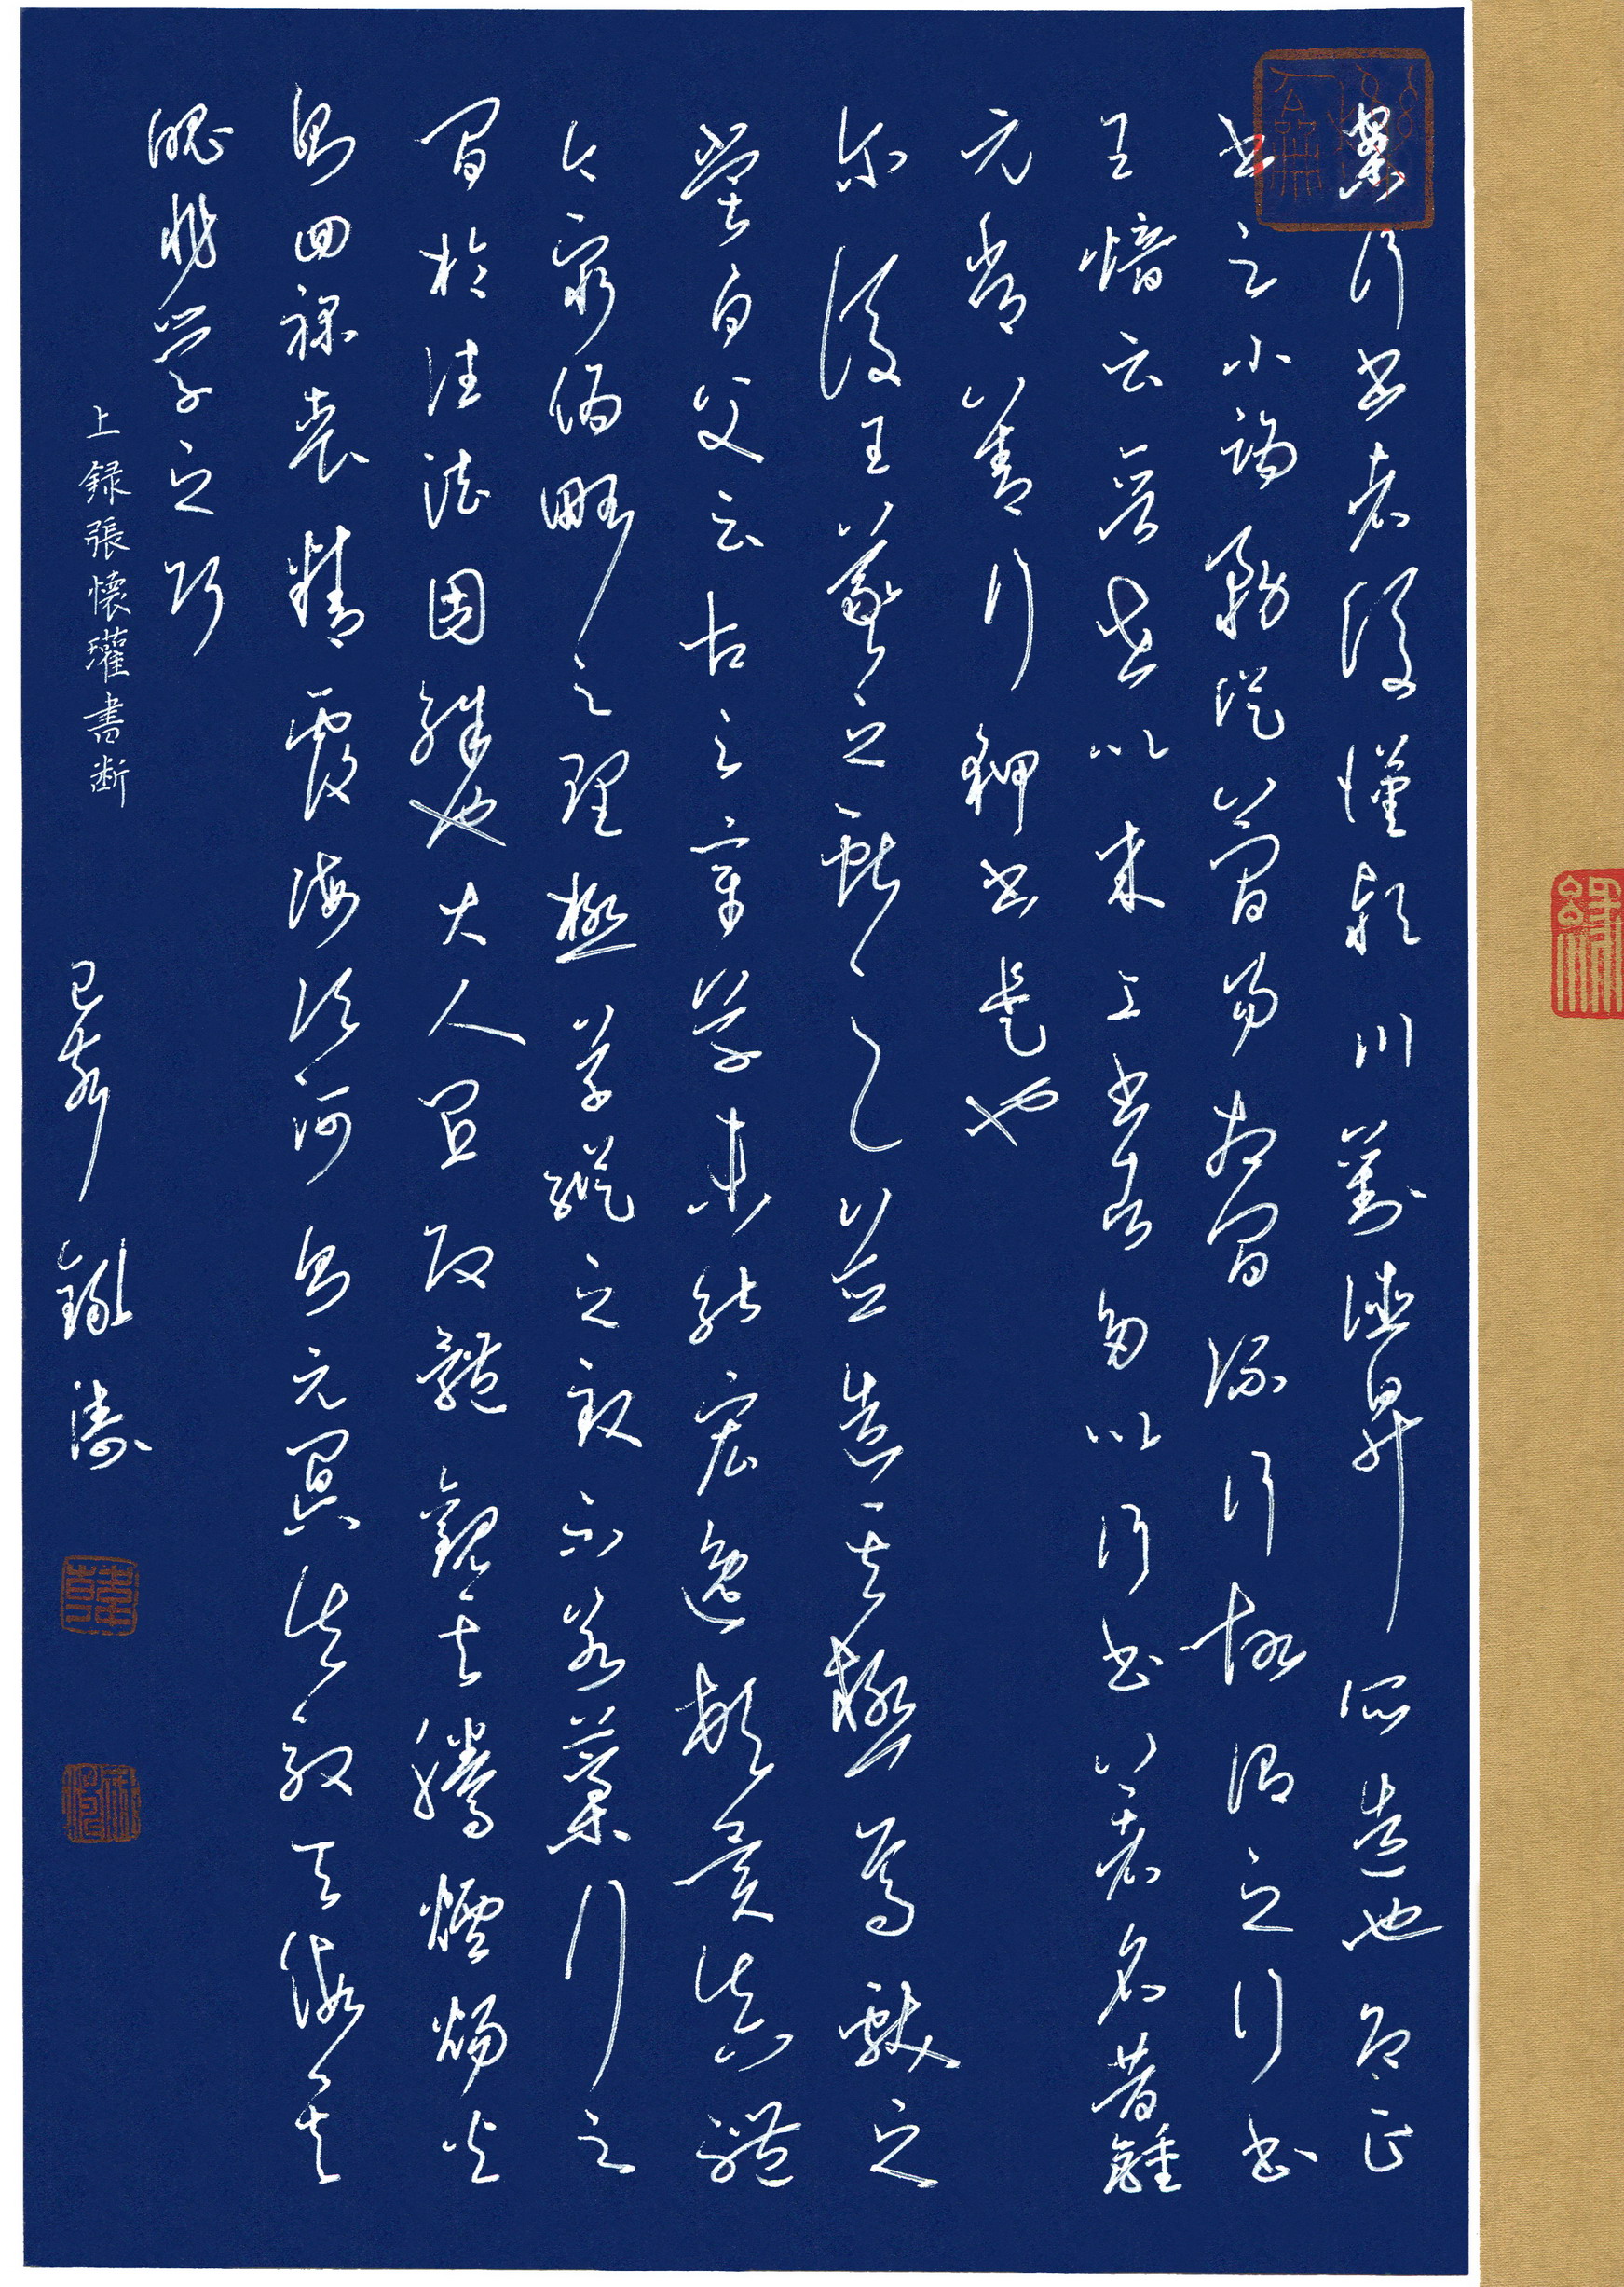 案行書者後漢潁川劉德昇所造也即正
書之小譌務從簡易相間流行故謂之行書
王愔云晉世以來工書者多以行書著名昔鍾
元常善行狎書是也
尔後王羲之獻之並造其極焉獻之
嘗白父云古之章草未能宏逸頓異真體
今窮偽略之理極草縱之致不若藁行之
間於往法固殊也大人宜改體觀其騰煙煬火
則回祿喪精覆海傾河則元冥失馭天假其
魄非學之巧
上録張懷瓘書斷
己亥